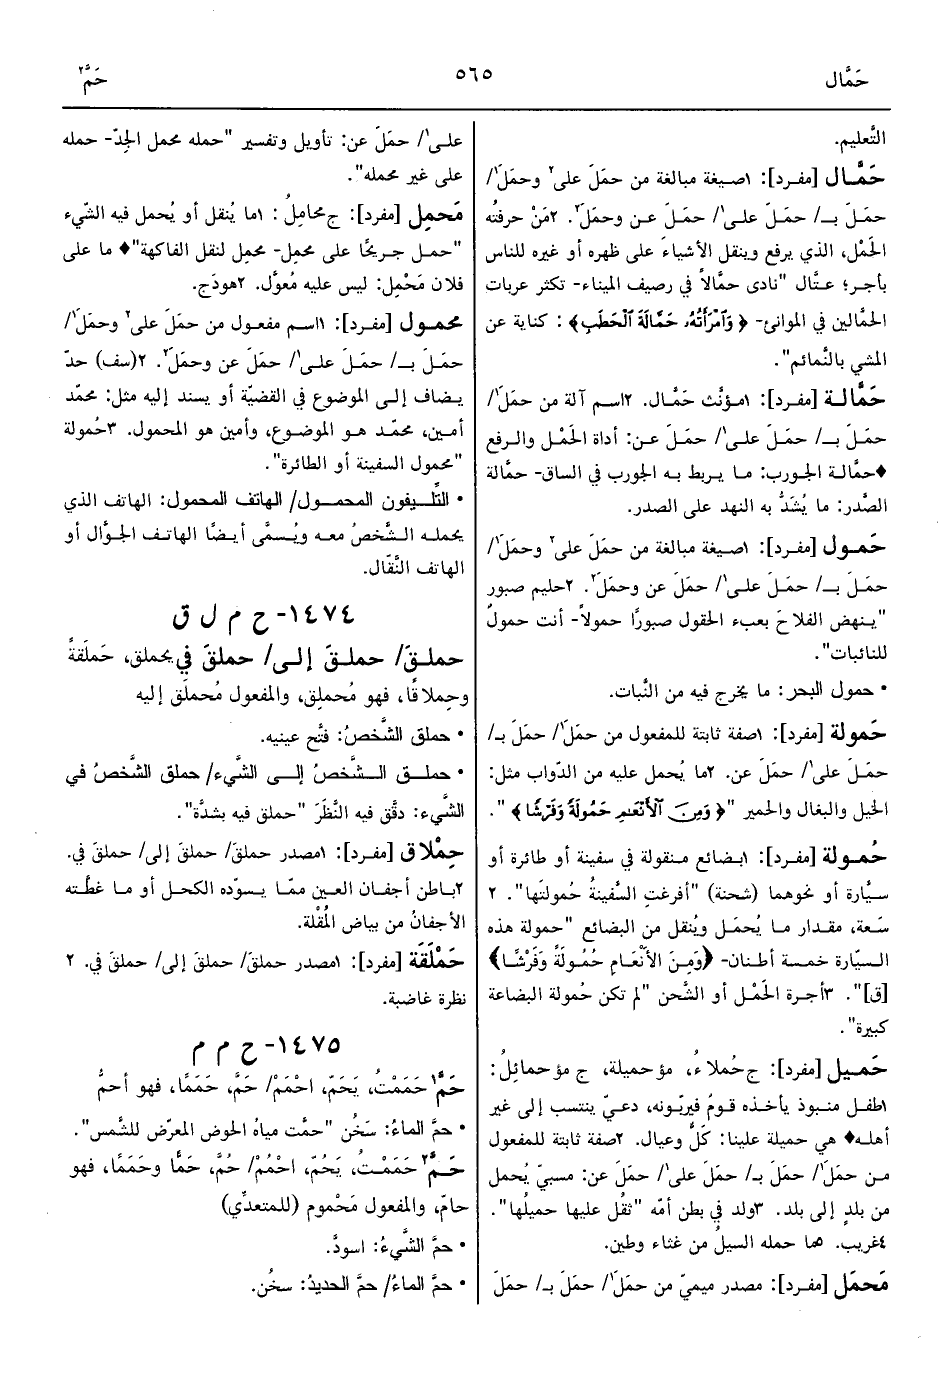 حَمَّال
٥٦٥
حَمَّ٢
التَّعليم.
حَمَّال [مفرد]: ١صيغة مبالغة من حمَلَ على٢ وحمَلَ١/
حمَلَ بـ/ حمَلَ على١/ حمَلَ عن وحمَلَ٢. ٢مَنْ حرفتُه
الحَمْل، الذي يرفع وينقل الأشياءَ على ظهره أو غيره للناس
بأجر؛ عتَّال "نادى حمَّالاً في رصيف الميناء- تكثر عربات
الحمَّالين في الموانئ- ﴿ وَٱمْرَأَتُهُۥ حَمَّالَةَ ٱلْحَطَبِ ﴾ : كناية عن
المشي بالنَّمائم".
حَمَّالة [مفرد]: ١مؤنَّث حَمَّال. ٢اسم آلة من حمَلَ١/
حمَلَ بـ/ حمَلَ على١/ حمَلَ عن: أداة الحَمْل والرفع
♦حمَّالة الجورب: ما يربط به الجورب في الساق- حمَّالة
الصَّدر: ما يُشَدُّ به النهد على الصدر.
حَمول [مفرد]: ١صيغة مبالغة من حمَلَ على٢ وحمَلَ١/
حمَلَ بـ/ حمَلَ على١/ حمَلَ عن وحمَلَ٢. ٢حليم صبور
"ينهض الفلاحَ بعبء الحقول صبورًا حمولاً- أنت حمولٌ
للنائبات".
• حمول البحر: ما يخرج فيه من النَّبات.
حَمولة [مفرد]: ١صفة ثابتة للمفعول من حمَلَ١/ حمَلَ بـ/
حمَلَ على١/ حمَلَ عن. ٢ما يُحمل عليه من الدَّواب مثل:
الخيل والبغال والحمير "﴿ وَمِنَ ٱلْأَنْعَٰمِ حَمُولَةً وَفَرْشًا ﴾ ".
حُمولة [مفرد]: ١بضائع منقولة في سفينة أو طائرة أو
سيَّارة أو نحوهما (شحنة) "أفرغتِ السَّفينةُ حُمولتَها". ٢
سَعة، مقدار ما يُحمَل ويُنقل من البضائع "حمولة هذه
السيَّارة خمسة أطنان- ﴿وَمِنَ الأَنْعَامِ حُمُولَةً وَفَرْشًا﴾
[ق]". ٣أجرة الحَمْل أو الشَّحن "لم تكن حُمولة البضاعة
كبيرة".
حَميل [مفرد]: ج حُملاءُ، مؤ حميلة، ج مؤ حمائلُ:
١طفل منبوذ يأخذه قومٌ فيربّونه، دعيّ ينتسب إلى غير
أهله♦ هي حميلة علينا: كَلٌّ وعيال. ٢صفة ثابتة للمفعول
من حمَلَ١/ حمَلَ بـ/ حمَلَ على١/ حمَلَ عن: مسبيّ يُحمل
من بلدٍ إلى بلد. ٣ولد في بطن أمّه "ثقُل عليها حميلُها".
٤غريب. ٥ما حمله السيلُ من غثاء وطين.
مَحمَل [مفرد]: مصدر ميميّ من حمَلَ١/ حمَلَ بـ/ حمَلَ
على١/ حمَلَ عن: تأويل وتفسير "حمله محمل الجِدّ- حمله
على غير محمله".
مَحمِل [مفرد]: ج محامِلُ : ١ما يُنقل أو يُحمل فيه الشّيء
"حمل جريحًا على محمِل- محمِل لنقل الفاكهة"♦ ما على
فلان مَحْمِل: ليس عليه مُعوَّل. ٢هودَج.
محمول [مفرد]: ١اسم مفعول من حمَلَ على٢ وحمَلَ١/
حمَلَ بـ/ حمَلَ على١/ حمَلَ عن وحمَلَ٢. ٢(سف) حدّ
يضاف إلى الموضوع في القضيّة أو يسند إليه مثل: محمّد
أمين، محمّد هو الموضوع، وأمين هو المحمول. ٣حُمولة
"محمول السفينة أو الطائرة".
• التِّليفون المحمول/ الهاتف المحمول: الهاتف الذي
يحمله الشَّخصُ معه ويُسمَّى أيضًا الهاتف الجوَّال أو
الهاتف النَّقَال.
١٤٧٤- ح م ل ق
حملقَ/ حملقَ إلى/ حملقَ في يحملق، حَملَقةً
وحِملاقًا، فهو مُحملِق، والمفعول مُحملَق إليه
• حملق الشَّخصُ: فتَّح عينيه.
• حملق الشَّخصُ إلى الشَّيء/ حملق الشَّخصُ في
الشَّيء: دقَّق فيه النَّظَرَ "حملق فيه بشدَّة".
حِمْلاق [مفرد]: ١مصدر حملقَ/ حملقَ إلى/ حملقَ في.
٢باطن أجفان العين ممّا يسوّده الكحل أو ما غطّته
الأجفانُ من بياض المُقْلة.
حَمْلَقَة [مفرد]: ١مصدر حملقَ/ حملقَ إلى/ حملقَ في. ٢
نظرة غاضبة.
١٤٧٥- ح م م
حَمَّ١ حَمَمْتُ، يَحَمّ، احْمَمْ/ حَمَّ، حَمَمًا، فهو أحمُّ
• حمَّ الماءُ: سَخُن "حمَّت مياهُ الحوض المعرّض للشَّمس".
حَمَّ٢ حَمَمْتُ، يَحُمّ، احْمُمْ/ حُمَّ، حَمًّا وحَمَمًا، فهو
حامّ، والمفعول مَحْموم (للمتعدِّي)
• حمَّ الشَّيءُ: اسودَّ.
• حمَّ الماءُ/ حمَّ الحديدُ: سخُن.